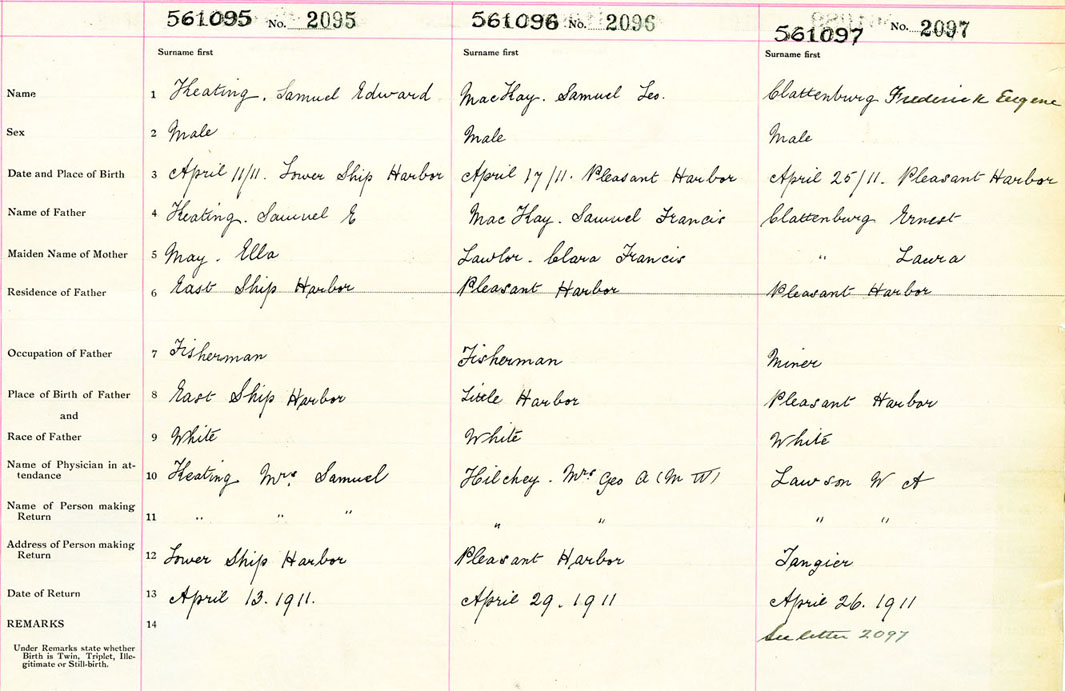 561095 No. 2095 561096 No. 2096 561097 No. 2097
Surname first Surname first Surname first
Name 1 Keating, Samuel Edward MacKay. Samuel Leo. Clattenburg Frederick Eugene
Sex 2 Male Male Male
Date and Place of Birth 3 April 11/11. Lower Ship Harbor April 17/11. Pleasant Harbor April 25/11. Pleasant Harbor
Name of Father 4 Keating. Samuel E MacKay. Samuel Francis Clattenburg Ernest
Maiden Name of Mother 5 May. Ella Lawlor. Clara Francis " Laura
Residence of Father 6 East Ship Harbor Pleasant Harbor Pleasant Harbor
Occupation of Father 7 Fisherman Fisherman Miner
Place of Birth of Father 8 East Ship Harbor Little Harbor Pleasant Harbor
and
Race of Father 9 White White White
Name of Physician in at-
tendance 10 Keating Mrs. Samuel Hilchey. Mrs Geo A (M W) Lawson W A
Name of Person making
Return 11 " " " " " " "
Address of Person making
Return 12 Lower Ship Harbor Pleasant Harbor Tangier
Date of Return 13 April 13. 1911. April 29. 1911 April 26. 1911
REMARKS 14 See letter 2097
Under Remarks state whether
Birth is Twin, Triplet, Ille-
gitimate or Still-birth.